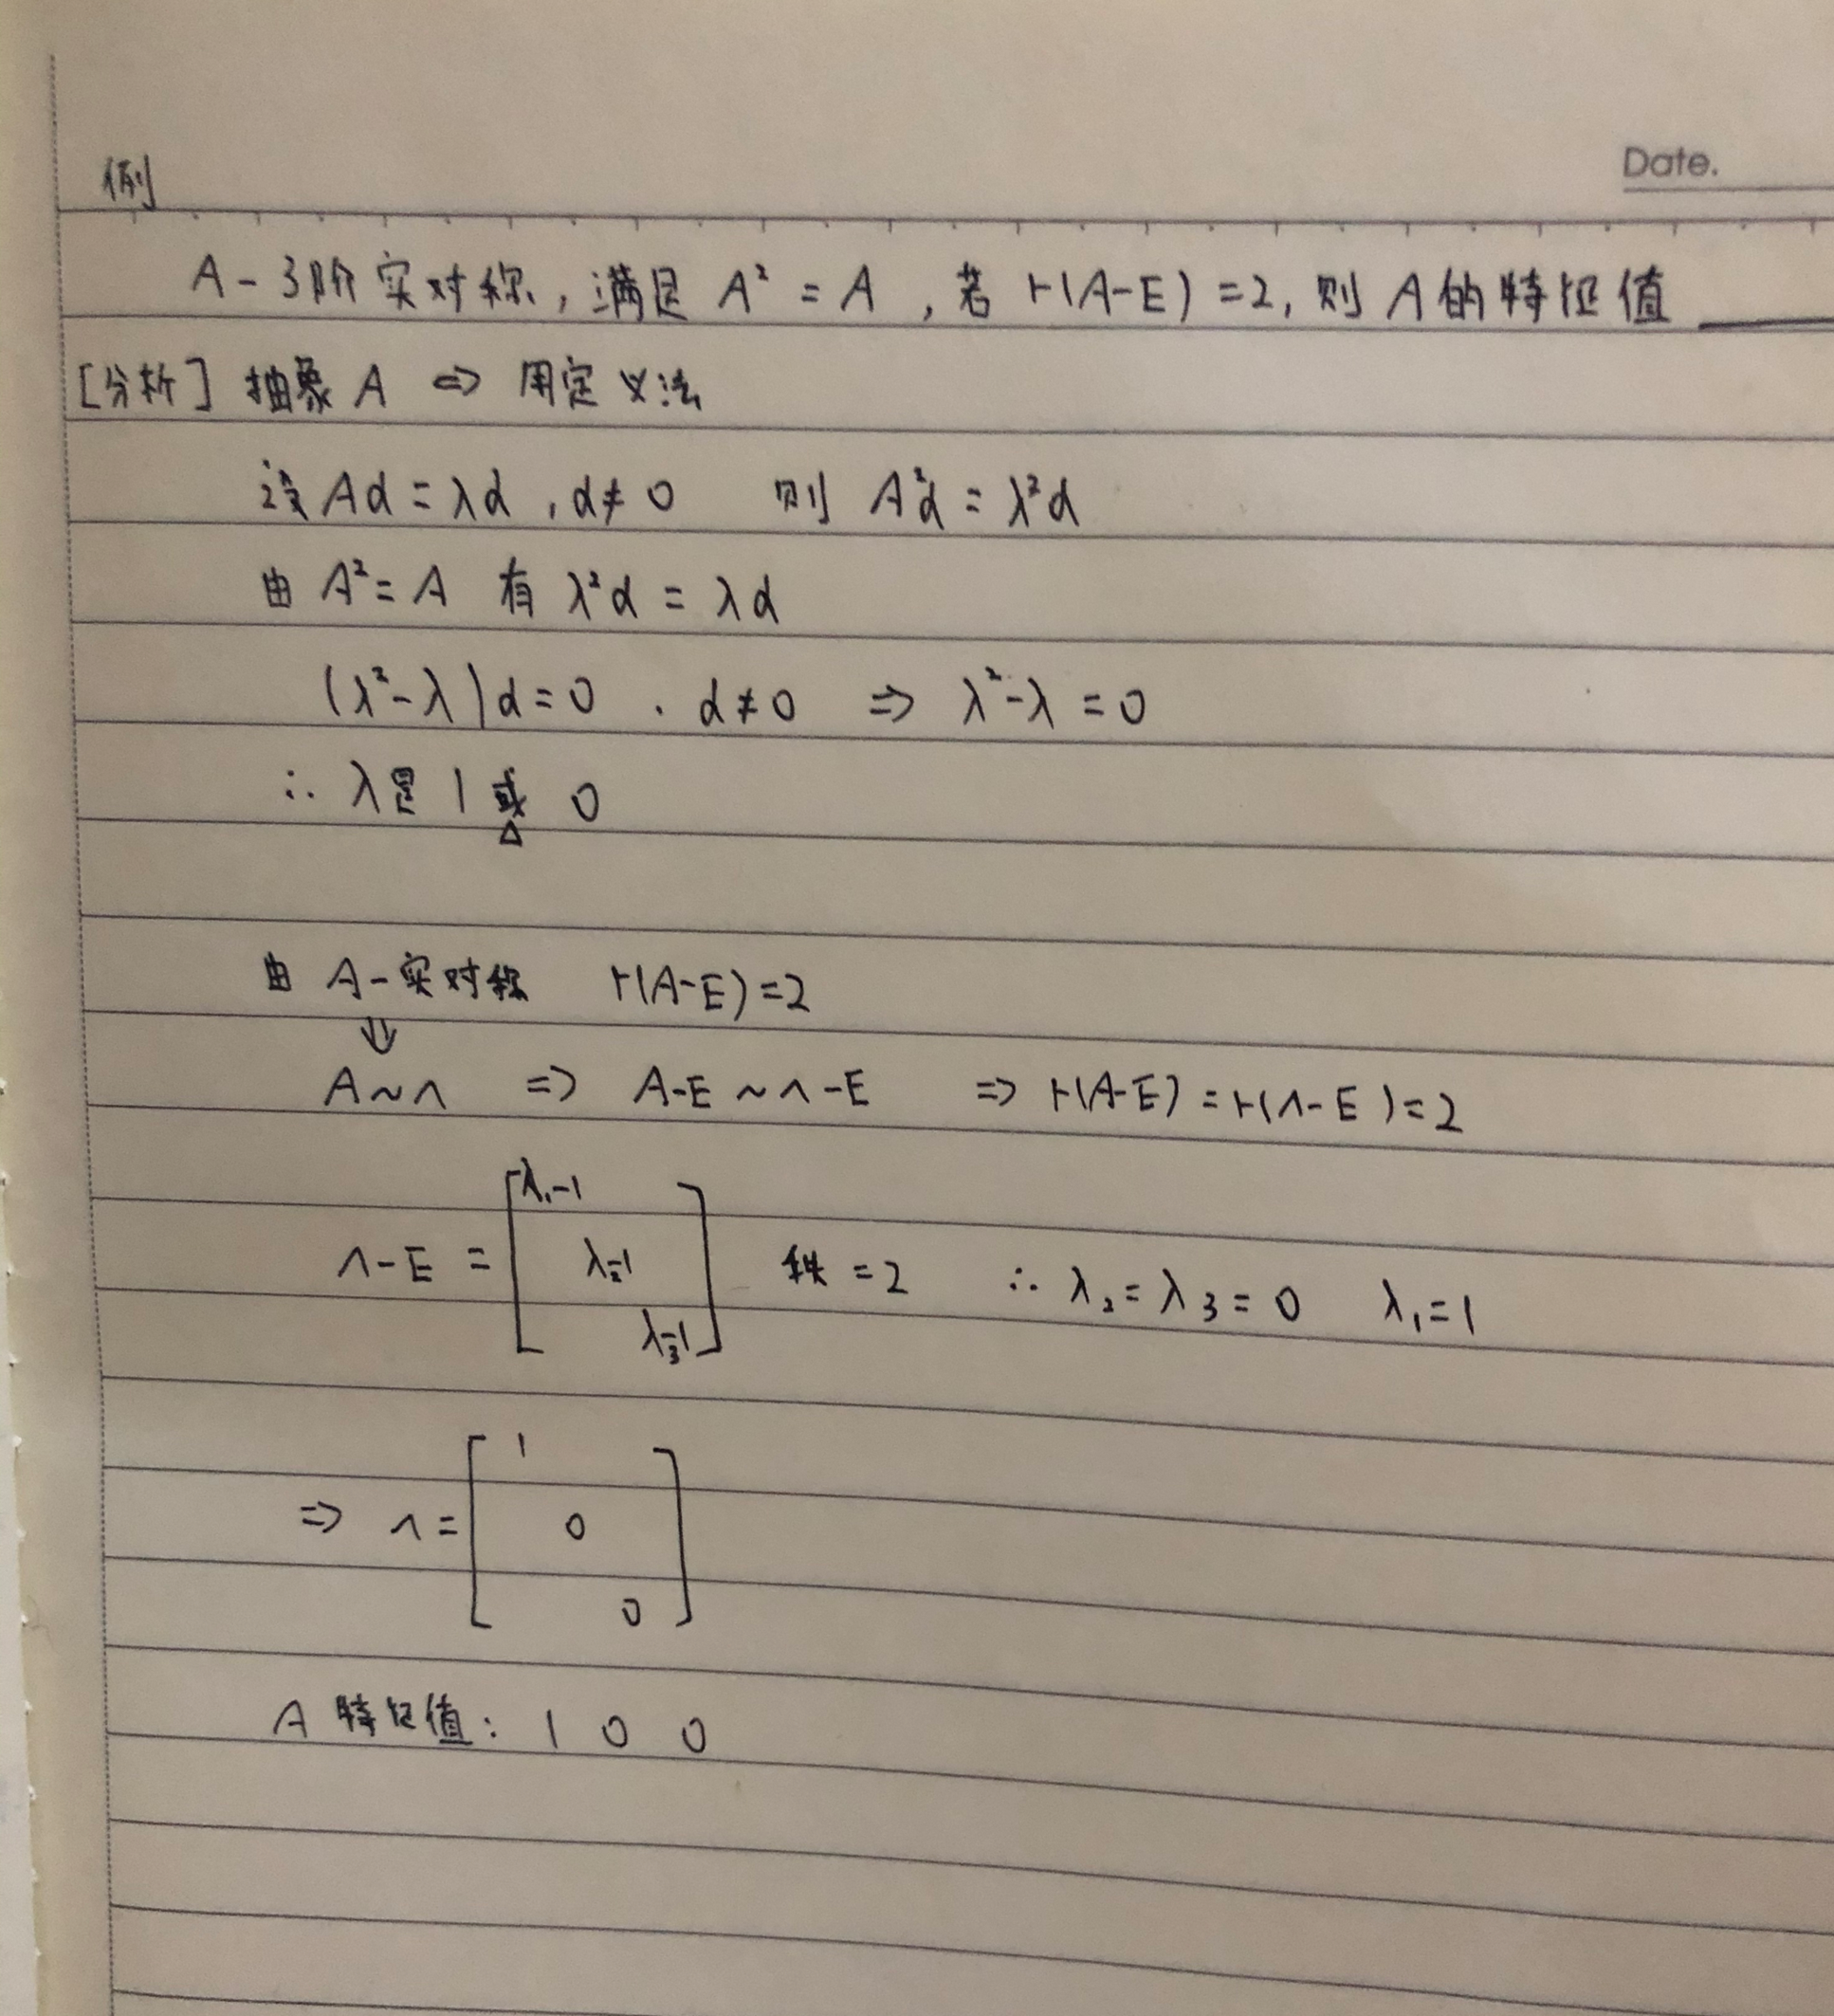 例
Date.
A-3阶实对称，满足 A² = A ，若 r(A-E)=2，则 A的特征值____
[分析] 抽象 A ⇨ 用定义法
设 Aα = λα , α≠0 则 A²α = λ²α
由 A² = A 有 λ²α = λα
(λ²-λ)α=0 . α≠0 ⇒ λ²-λ=0
∴ λ是 1 或 0
△
由 A-实对称 r(A-E)=2
⇓
A~Λ ⇒ A-E ~ Λ-E ⇒ r(A-E) = r(Λ-E)=2
Λ-E = [λ₁-1 λ₂-1 λ₃-1] 秩=2 ∴ λ₂=λ₃=0 λ₁=1
⇒ Λ= [1 0 0]
A 特征值: 1 0 0